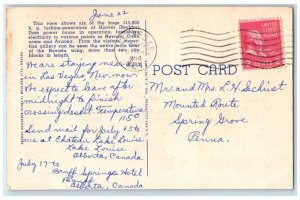 June 22
This view shows six of the huge 115,000
h. p. turbine-generators of Hoover (Boulder)
Dam power house in operation, furnishing
electricity to various points in Nevada, California
and Arizona. From the visitors' inspection
gallery can be seen the entire main floor
of the Nevada wing, more than two city
blocks in length.
We are staying near
in Las Vegas, Nev. now.
We expect to leave after
midnight to finish
crossing desert. Temperature
115°
Send mail for July 15 to
me at Chateau Lake Louise
Lake Louise
Alberta, Canada
July 17 to
Banff Springs Hotel
Banff
Alberta, Canada
POST CARD
Mr. and Mrs. L. H. Sechrist
Mounted Route
Spring Grove
Penna.